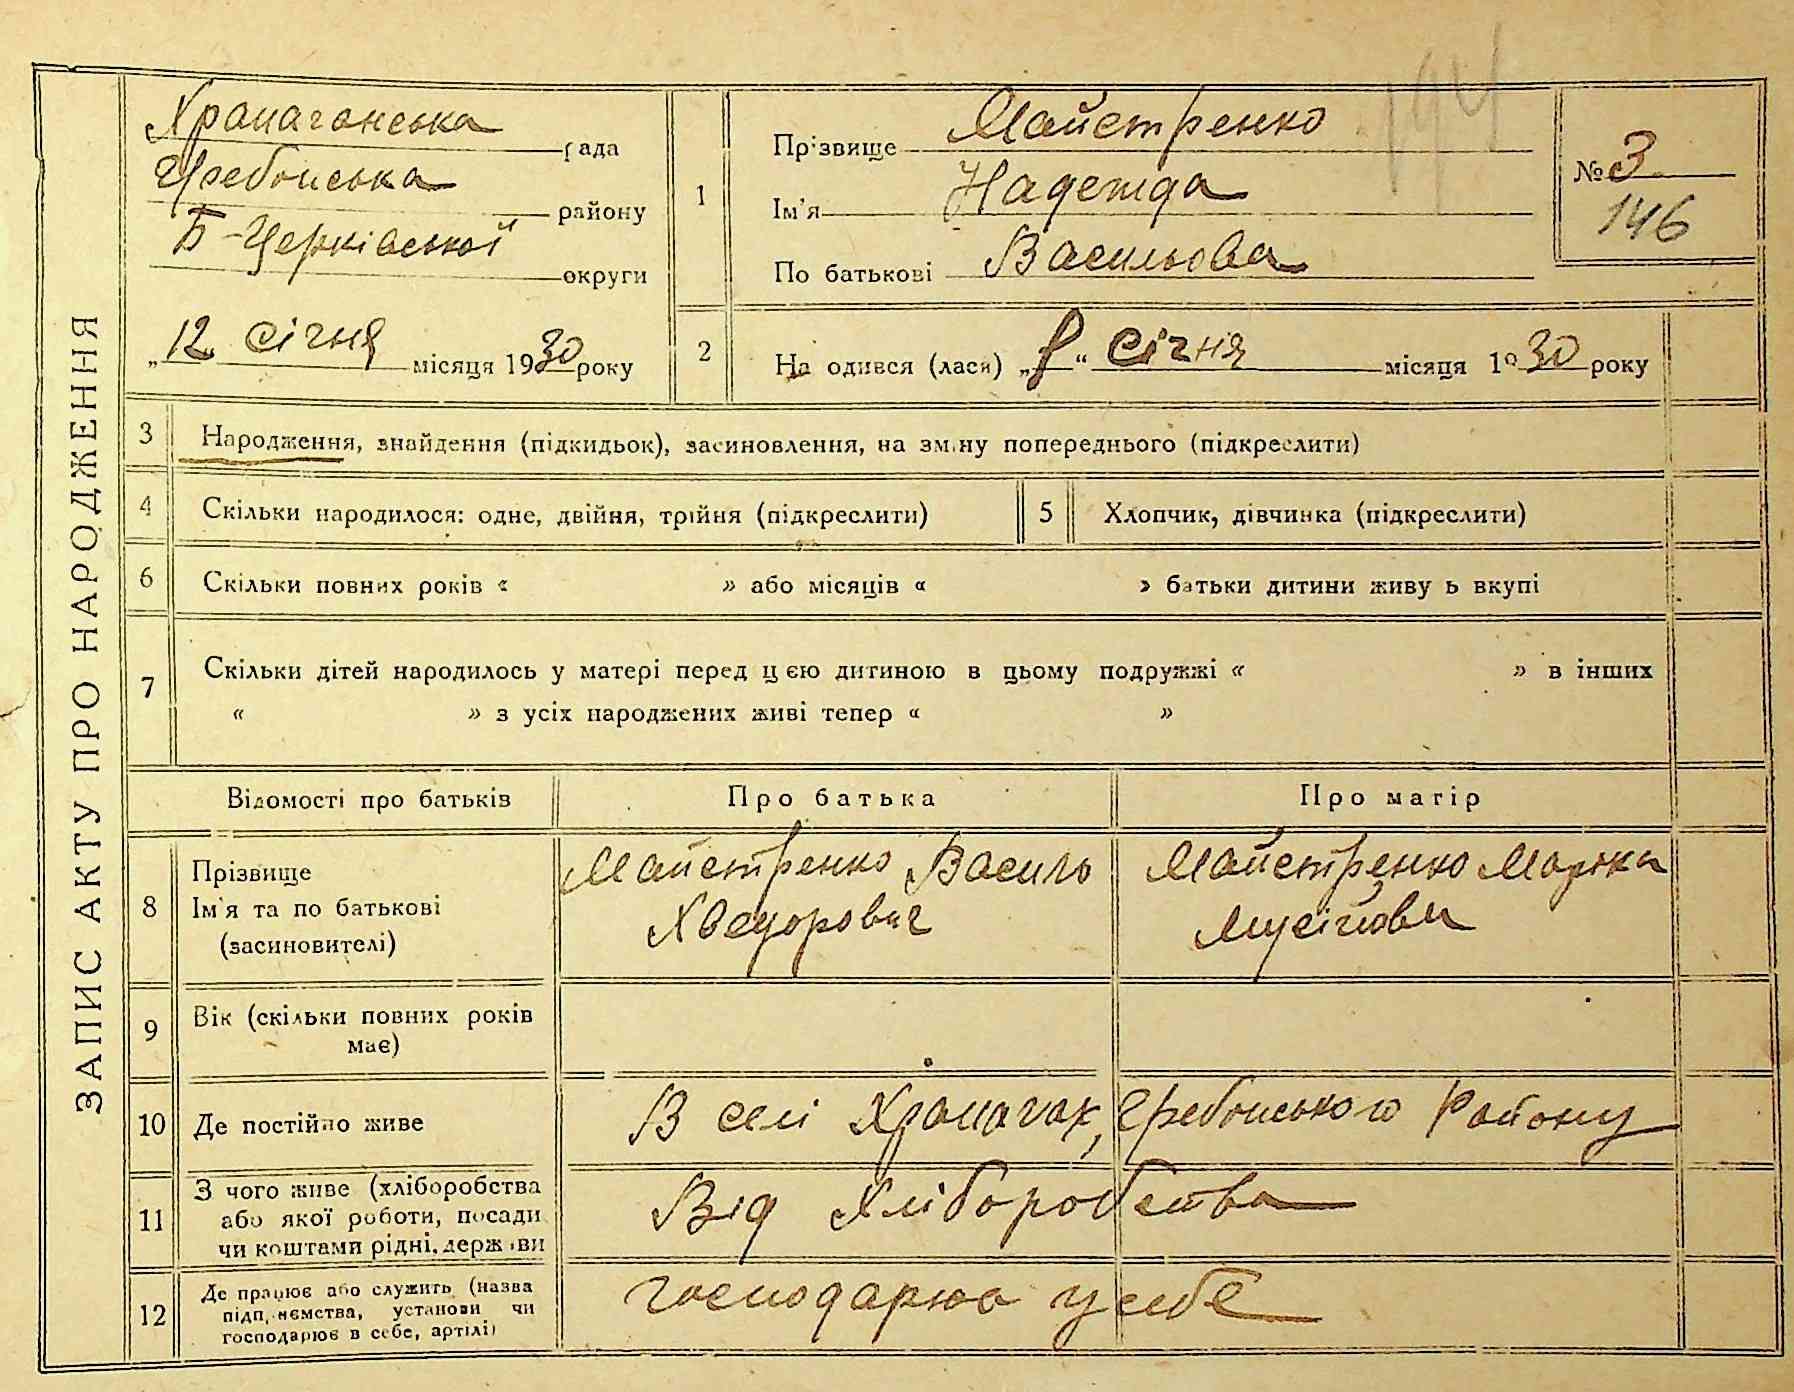 ЗАПИС АКТУ ПРО НАРОДЖЕННЯ
Храпаганська рада
Гребонська району
Б-Церківської округи
„12 січня місяця 1930 року
1
Прізвище Майстренко
Ім'я Надежда
По батькові Васильова
194
№ 3
146
2
На одився (лася) „8“ січня місяця 1930 року
3 Народження, знайдення (підкидьок), засиновлення, на зміну попереднього (підкреслити)
4 Скільки народилося: одне, двійня, трійня (підкреслити)
5 Хлопчик, дівчинка (підкреслити)
6 Скільки повних років « » або місяців « » батьки дитини живу ь вкупі
7 Скільки дітей народилось у матері перед цєю дитиною в цьому подружжі « » в інших
« » з усіх народжених живі тепер « »
Відомості про батьків Про батька Про матір
8
Прізвище
Ім'я та по батькові
(засиновителі)
Майстренко Василь
Хведорович
Майстренко Марька
Мусійовн
9 Вік (скільки повних років
має)
10 Де постійно живе В селі Храпачах, Гребонського Району
11
З чого живе (хліборобства
або якої роботи, посади
чи коштами рідні, держави
Від Хліборобства
12
Де працює або служить (назва
підп, иємства, установи чи
господарює в себе, артілі)
господарює у себе